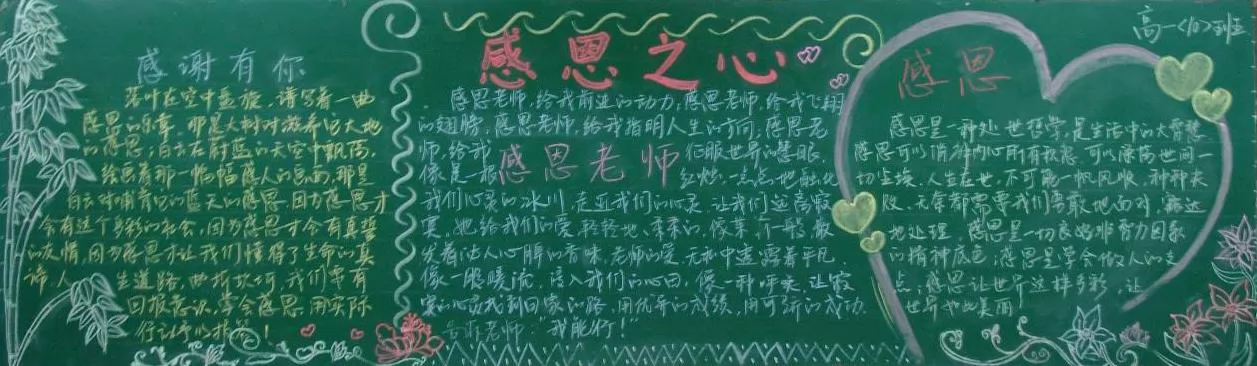 感谢有你
落叶在空中盘旋，谱写着一曲
感恩的乐章，那是大树对滋养它大地
的感恩；白云在蔚蓝的天空中飘荡，
绘画着那一幅幅感人的画面，那是
白云对哺育它的蓝天的感恩。因为感恩才
会有这个多彩的社会，因为感恩才会有真挚
的友情，因为感恩才让我们懂得了生命的真
谛，人生道路，曲折坎坷，我们要有
回报意识，学会感恩，用实际
行动
感恩之心
感恩老师，给我前进的动力；感恩老师，给我飞翔
的翅膀，感恩老师，给我指明人生的方向，感恩老
师，给我征服世界的慧眼。
感恩老师
像是一根红烛，一点点地融化
我们心灵的冰川，走进我们的心灵，让我们远离寂
寞。她给我们的爱，轻轻地、柔柔的，像茉
发着沁人心脾的香味。老师的爱，无私中透露着平凡，
像一股暖流，渗入我们的心田，像一种呼唤，让寂
寞的心灵找到回家的路，用优异的成绩，用可
老师："我能行！"
高一〈10〉班
感恩
感恩是一种处世哲学，是生活中的大智慧
感恩可以消
切尘埃。人生在世，不可能一帆风顺，种种失
败、无奈都需要我们勇敢地面对，豁达
地处理。感恩是一切良好非智力因素
的精神底色，感恩是学会做人的支
点；感恩让世界这样多彩，让
世界如此美丽